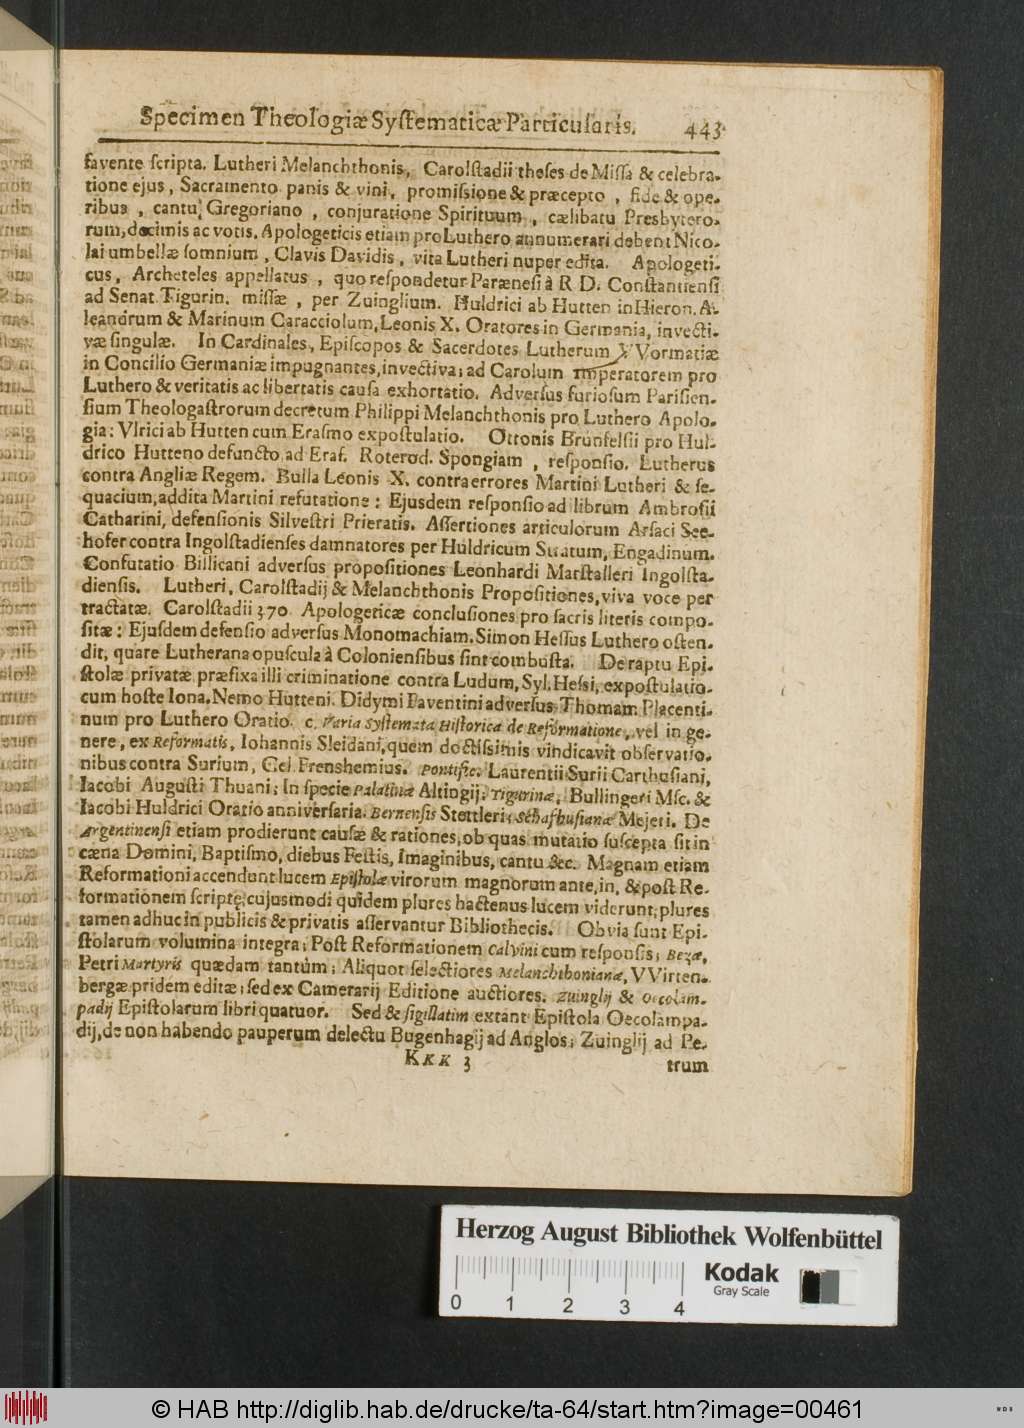 Specimen Theologiæ Systematicæ Particularis. 443
favente scripta. Lutheri Melanchthonis, Carolstadii theses de Missa & celebra-
tione ejus, Sacramento panis & vini, promissione & præcepto, fide & ope-
ribus, cantu Gregoriano, conjuratione Spirituum, cælibatu Presbytero-
rum, decimis ac votis. Apologeticis etiam pro Luthero annumerari debent Nico-
lai umbellæ somnium, Clavis Davidis, vita Lutheri nuper edita. Apologeti-
cus, Archeteles appellatus, quo respondetur Parænesi à R D. Constantiensi
ad Senat. Tigurin. missæ, per Zuinglium. Huldrici ab Hutten in Hieron. A-
leandrum & Marinum Caracciolum, Leonis X. Oratores in Germania, invecti-
væ singulæ. In Cardinales, Episcopos & Sacerdotes Lutherum VVormatiæ
in Concilio Germaniæ impugnantes, invectiva; ad Carolum Imperatorem pro
Luthero & veritatis ac libertatis causa exhortatio. Adversus furiosum Parisien-
sium Theologastrorum decretum Philippi Melanchthonis pro Luthero Apolo-
gia: Vlrici ab Hutten cum Erasmo expostulatio. Ottonis Brunfelsii pro Hul-
drico Hutteno defuncto ad Eras. Roterod. Spongiam, responsio. Lutherus
contra Angliæ Regem. Bulla Leonis X. contra errores Martini Lutheri & se-
quacium, addita Martini refutatione: Ejusdem responsio ad librum Ambrosii
Catharini, defensionis Silvestri Prieratis. Assertiones articulorum Arsaci See-
hofer contra Ingolstadienses damnatores per Huldricum Stratum, Engadinum.
Confutatio Billicani adversus propositiones Leonhardi Marstalleri Ingolsta-
diensis. Lutheri, Carolstadij & Melanchthonis Propositiones, viva voce per
tractatæ. Carolstadii 370 Apologeticæ conclusiones pro sacris literis compo-
sitæ: Ejusdem defensio adversus Monomachiam. Simon Hessus Luthero osten-
dit, quare Lutherana opuscula à Coloniensibus sint combusta. De raptu Epi-
stolæ privatæ præfixa illi criminatione contra Ludum, Syl. Hessi, expostulatio
cum hoste Iona. Nemo Hutteni. Didymi Faventini adversus Thomam Placenti-
num pro Luthero Oratio. c. Varia Systemata Historica de Reformatione, vel in ge-
nere, ex Reformatis, Iohannis Sleidani, quem doctissimis vindicavit observatio-
nibus contra Surium, Cel. Frenshemius. Pontific. Laurentii Surii Carthusiani,
Iacobi Augusti Thuani; In specie Palatinæ Altingij. Tigurinæ, Bullingeri Msc. &
Iacobi Huldrici Oratio anniversaria. Bernensis Stettleri; Schafhusianæ Mejeri. De
Argentinensi etiam prodierunt causæ & rationes, ob quas mutatio suscepta sit in
cæna Domini, Baptismo, diebus Festis, Imaginibus, cantu &c. Magnam etiam
Reformationi accendunt lucem Epistolæ virorum magnorum ante, in, & post Re-
formationem scriptę, cujusmodi quidem plures hactenus lucem viderunt; plures
tamen adhuc in publicis & privatis asservantur Bibliothecis. Obvia sunt Epi-
stolarum volumina integra; Post Reformationem Calvini cum responsis; Bezæ,
Petri Martyris quædam tantùm; Aliquot selectiores Melanchthonianæ, VVitten-
bergæ pridem editæ; sed ex Camerarij Editione auctiores. Zuinglij & Oecolam-
padij Epistolarum libri quatuor. Sed & sigillatim extant Epistola Oecolampa-
dij, de non habendo pauperum delectu Bugenhagij ad Anglos; Zuinglij ad Pe-
KKK 3 trum
Herzog August Bibliothek Wolfenbüttel
Kodak
Gray Scale
0 1 2 3 4
© HAB http://diglib.hab.de/drucke/ta-64/start.htm?image=00461